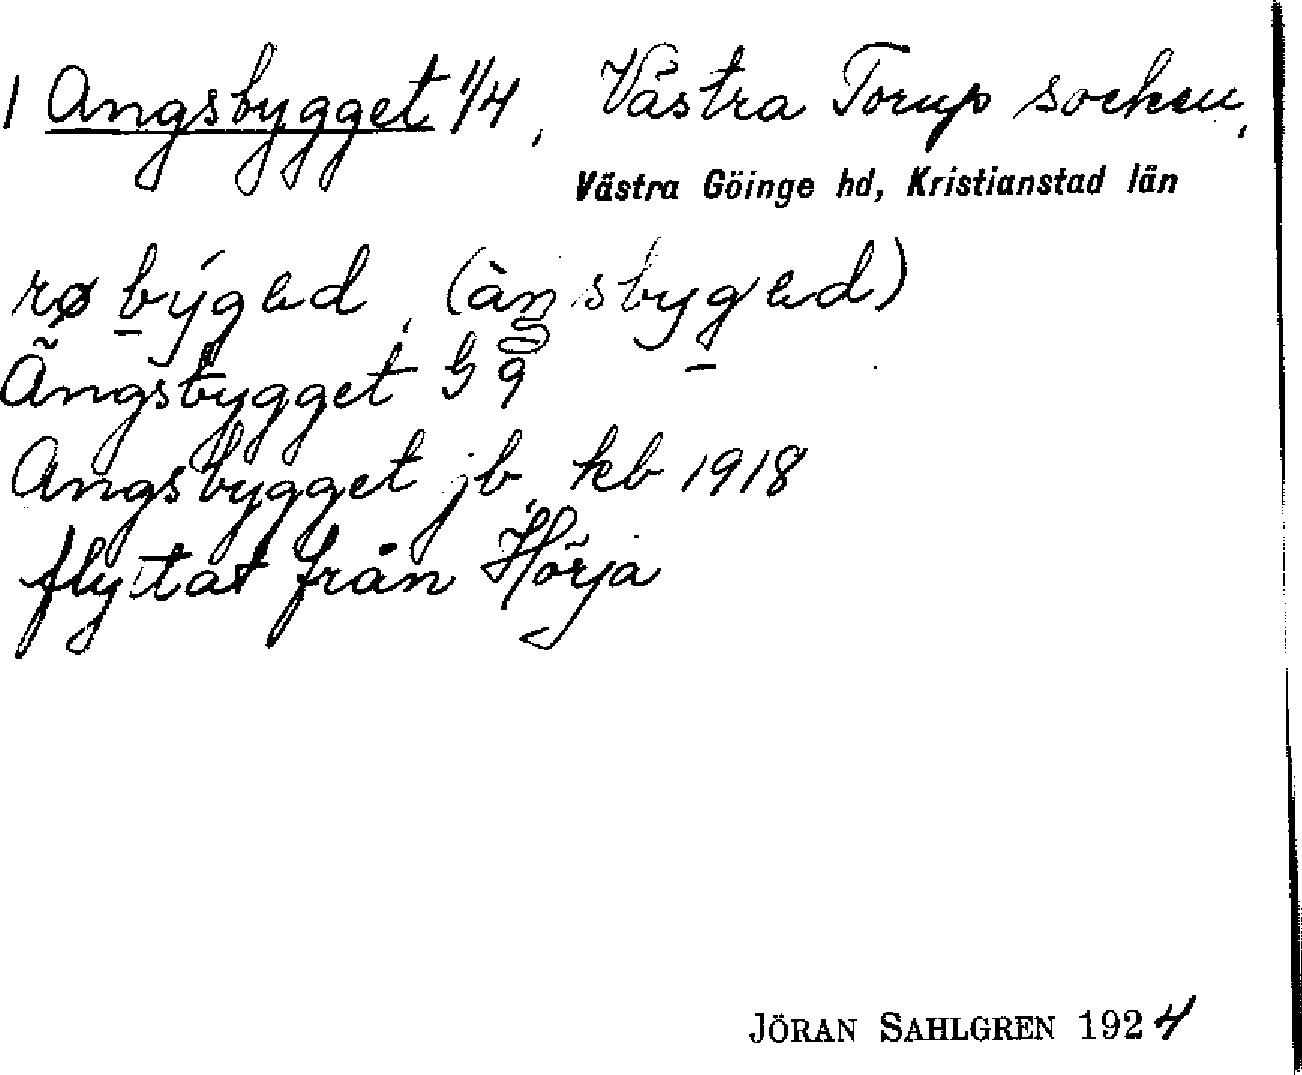 1 Angsbygget 1/4, Västra Torup socken,
Västra Göinge hd, Kristianstad län
Ängsbygget G 9
Angsbygget jb, kb 1918
flyttat från Hörja
JÖRAN SAHLGREN 1924